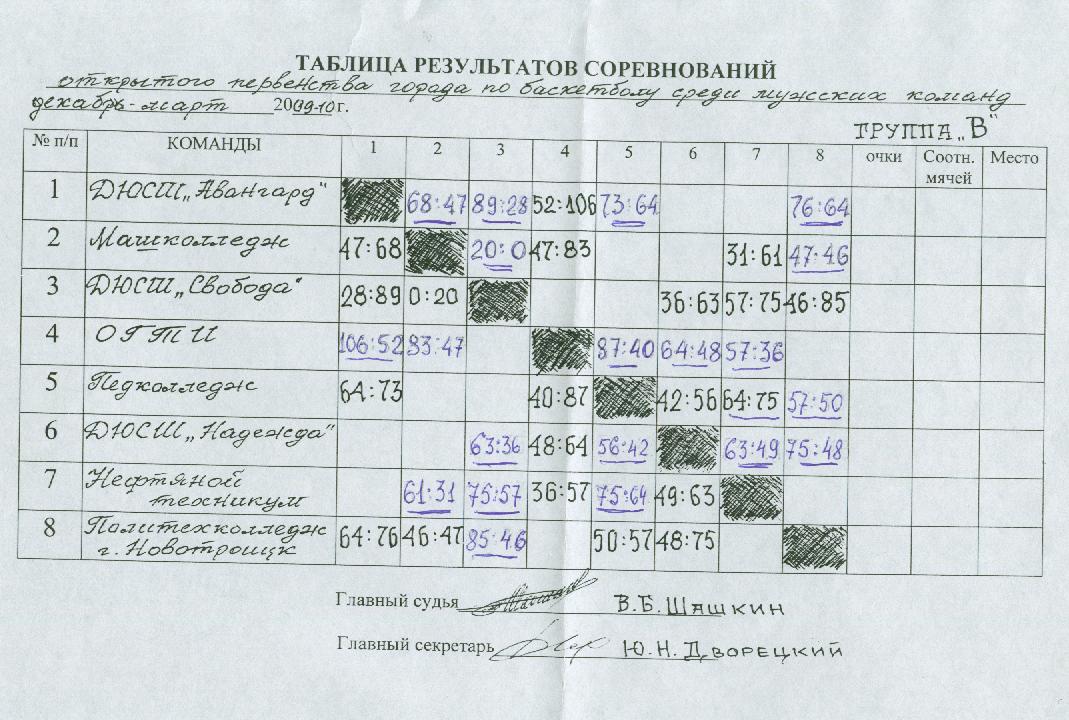 ТАБЛИЦА РЕЗУЛЬТАТОВ СОРЕВНОВАНИЙ
открытого первенства города по баскетболу среди мужских команд
декабрь-март 2009-10 г.
ГРУППА „В"
№ п/п КОМАНДЫ 1 2 3 4 5 6 7 8 очки Соотн. мячей Место
1 ДЮСШ „Авангард" 68:47 89:28 52:106 73:64 76:64
2 Машколледж 47:68 20:0 47:83 31:61 47:46
3 ДЮСШ „Свобода" 28:89 0:20 36:63 57:75 46:85
4 ОГТИ 106:52 83:47 87:40 64:48 57:36
5 Педколледж 64:73 40:87 42:56 64:75 57:50
6 ДЮСШ „Надежда" 63:36 48:64 56:42 63:49 75:48
7 Нефтяной
техникум 61:31 75:57 36:57 75:64 49:63
8 Политехколледж
г. Новотроицк 64:76 46:47 85:46 50:57 48:75
Главный судья В.Б. ШАШКИН
Главный секретарь Ю.Н. ДВОРЕЦКИЙ